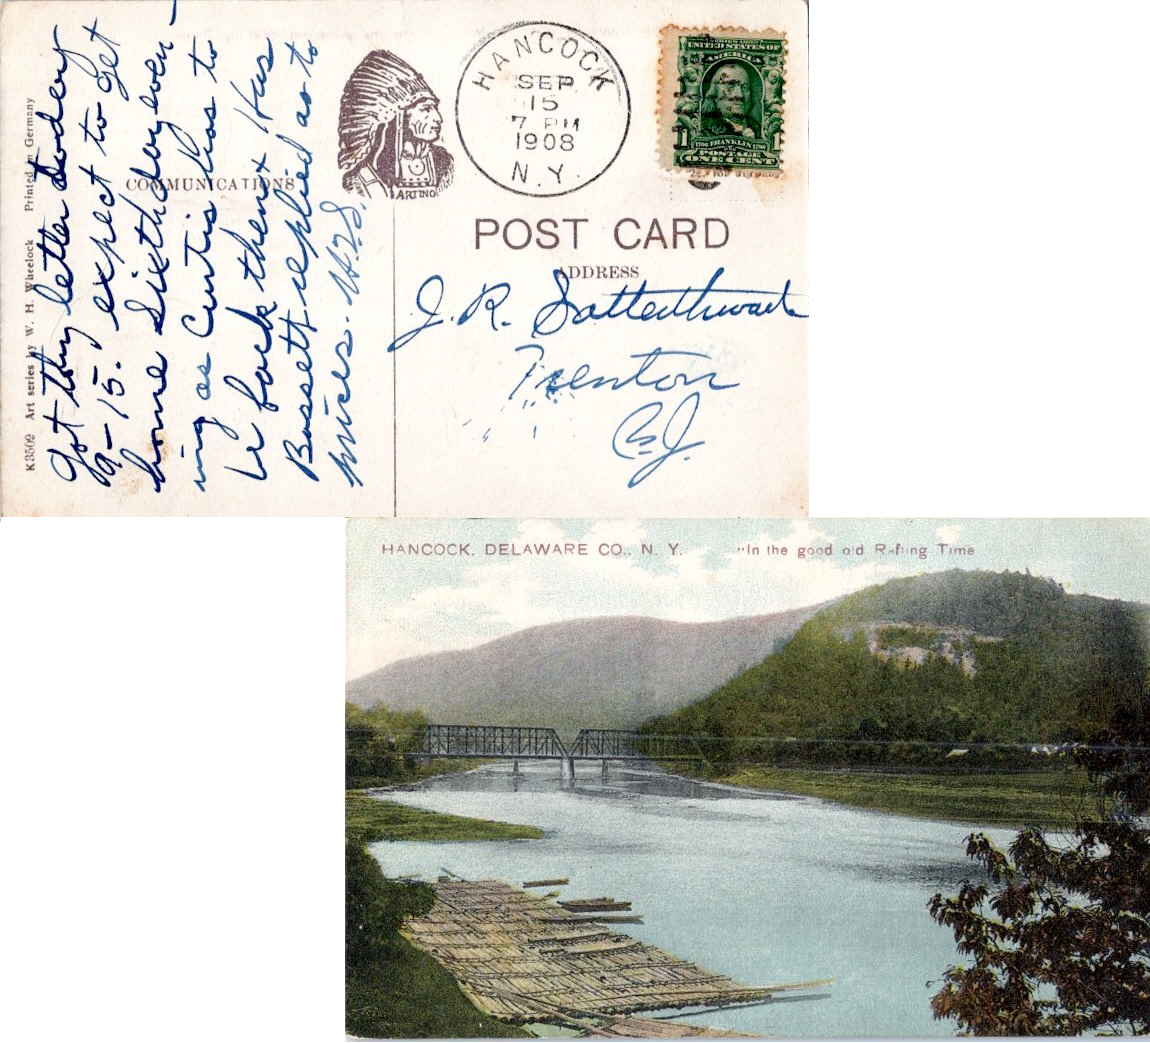 Got thy letter to-day
9-15. expect to get
home Sixth day even-
ing as Curtis has to
be back then + Has
Bassett replied as to
mices. W.L.S.
COMMUNICATIONS
K3509 Art series by W. H. Wheelock Printed in Germany
ARTINO
HANCOCK
SEP
15
7 PM
1908
N.Y.
UNITED STATES OF
AMERICA
1 1706 FRANKLIN 1790 1
POSTAGE
ONE CENT
POST CARD
ADDRESS
J. R. Satterthwaite
Trenton
N.J.
HANCOCK, DELAWARE CO., N. Y. "In the good old Rafting Time